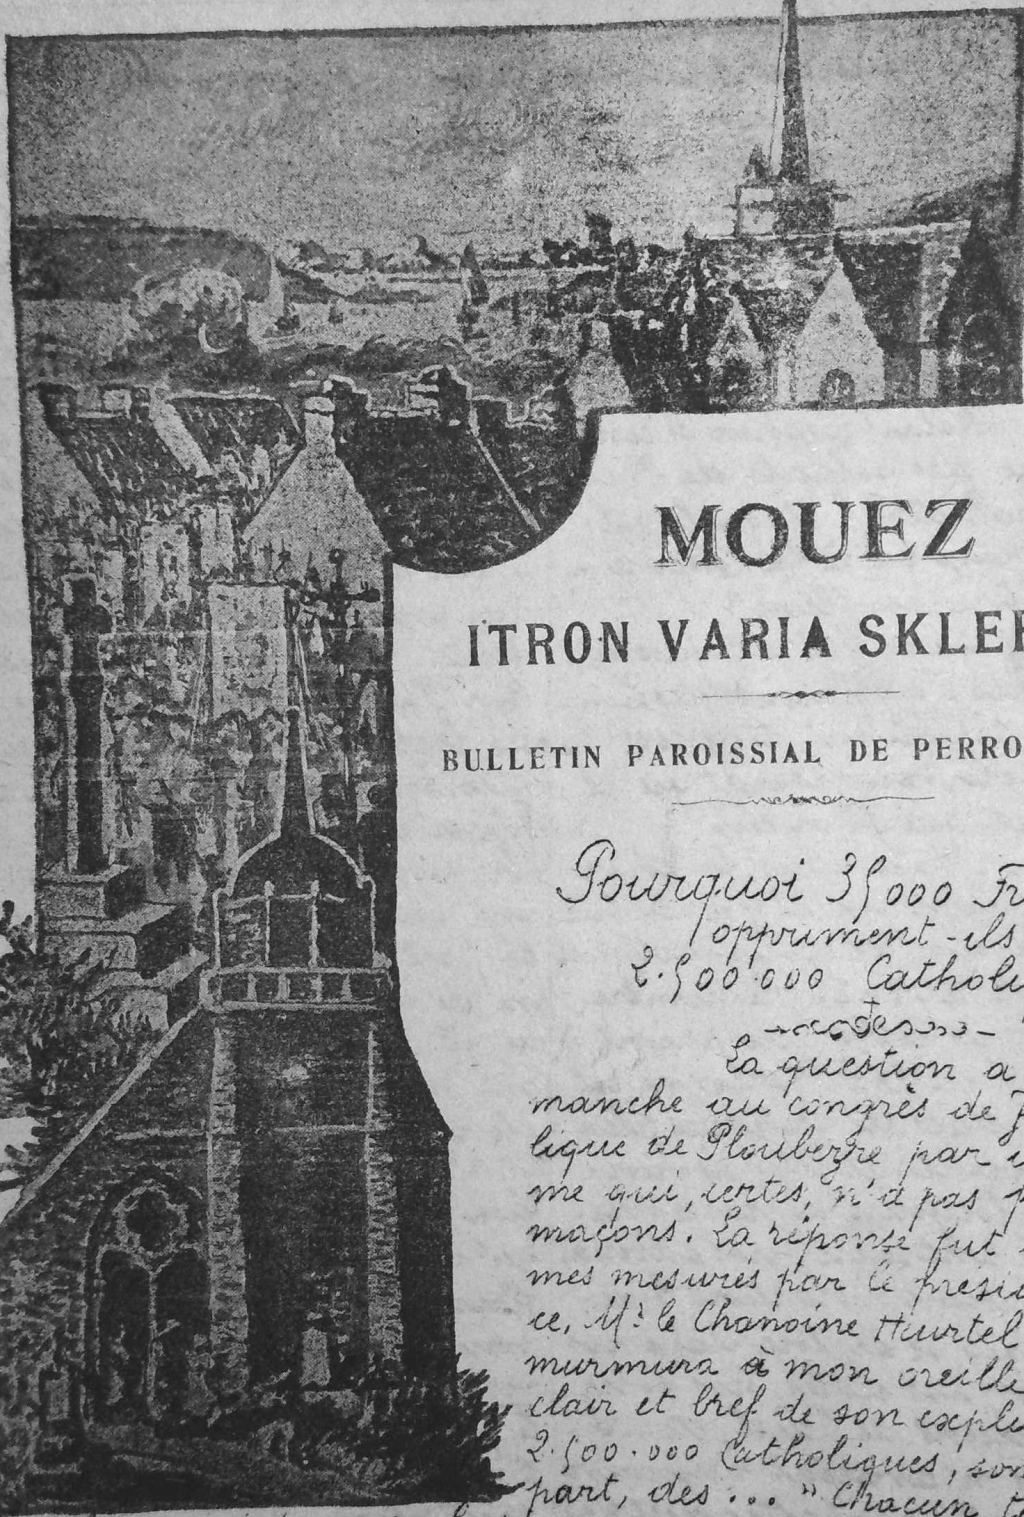 MOUEZ
ITRON VARIA SKLE
BULLETIN PAROISSIAL DE PERRO
Pourquoi 35000 Fr
oppriment-ils
2.500.000 Catholi
La question a
manche au congrès de J
lique de Ploubezre par u
me qui, certes, n'a pas p
maçons. La réponse fut
mes mesurés par le présid
ce, Mr le Chanoine Hurtel
murmura à mon oreille
clair et bref de son expl
2.500.000 Catholiques, son
part, des ... " Chacun t